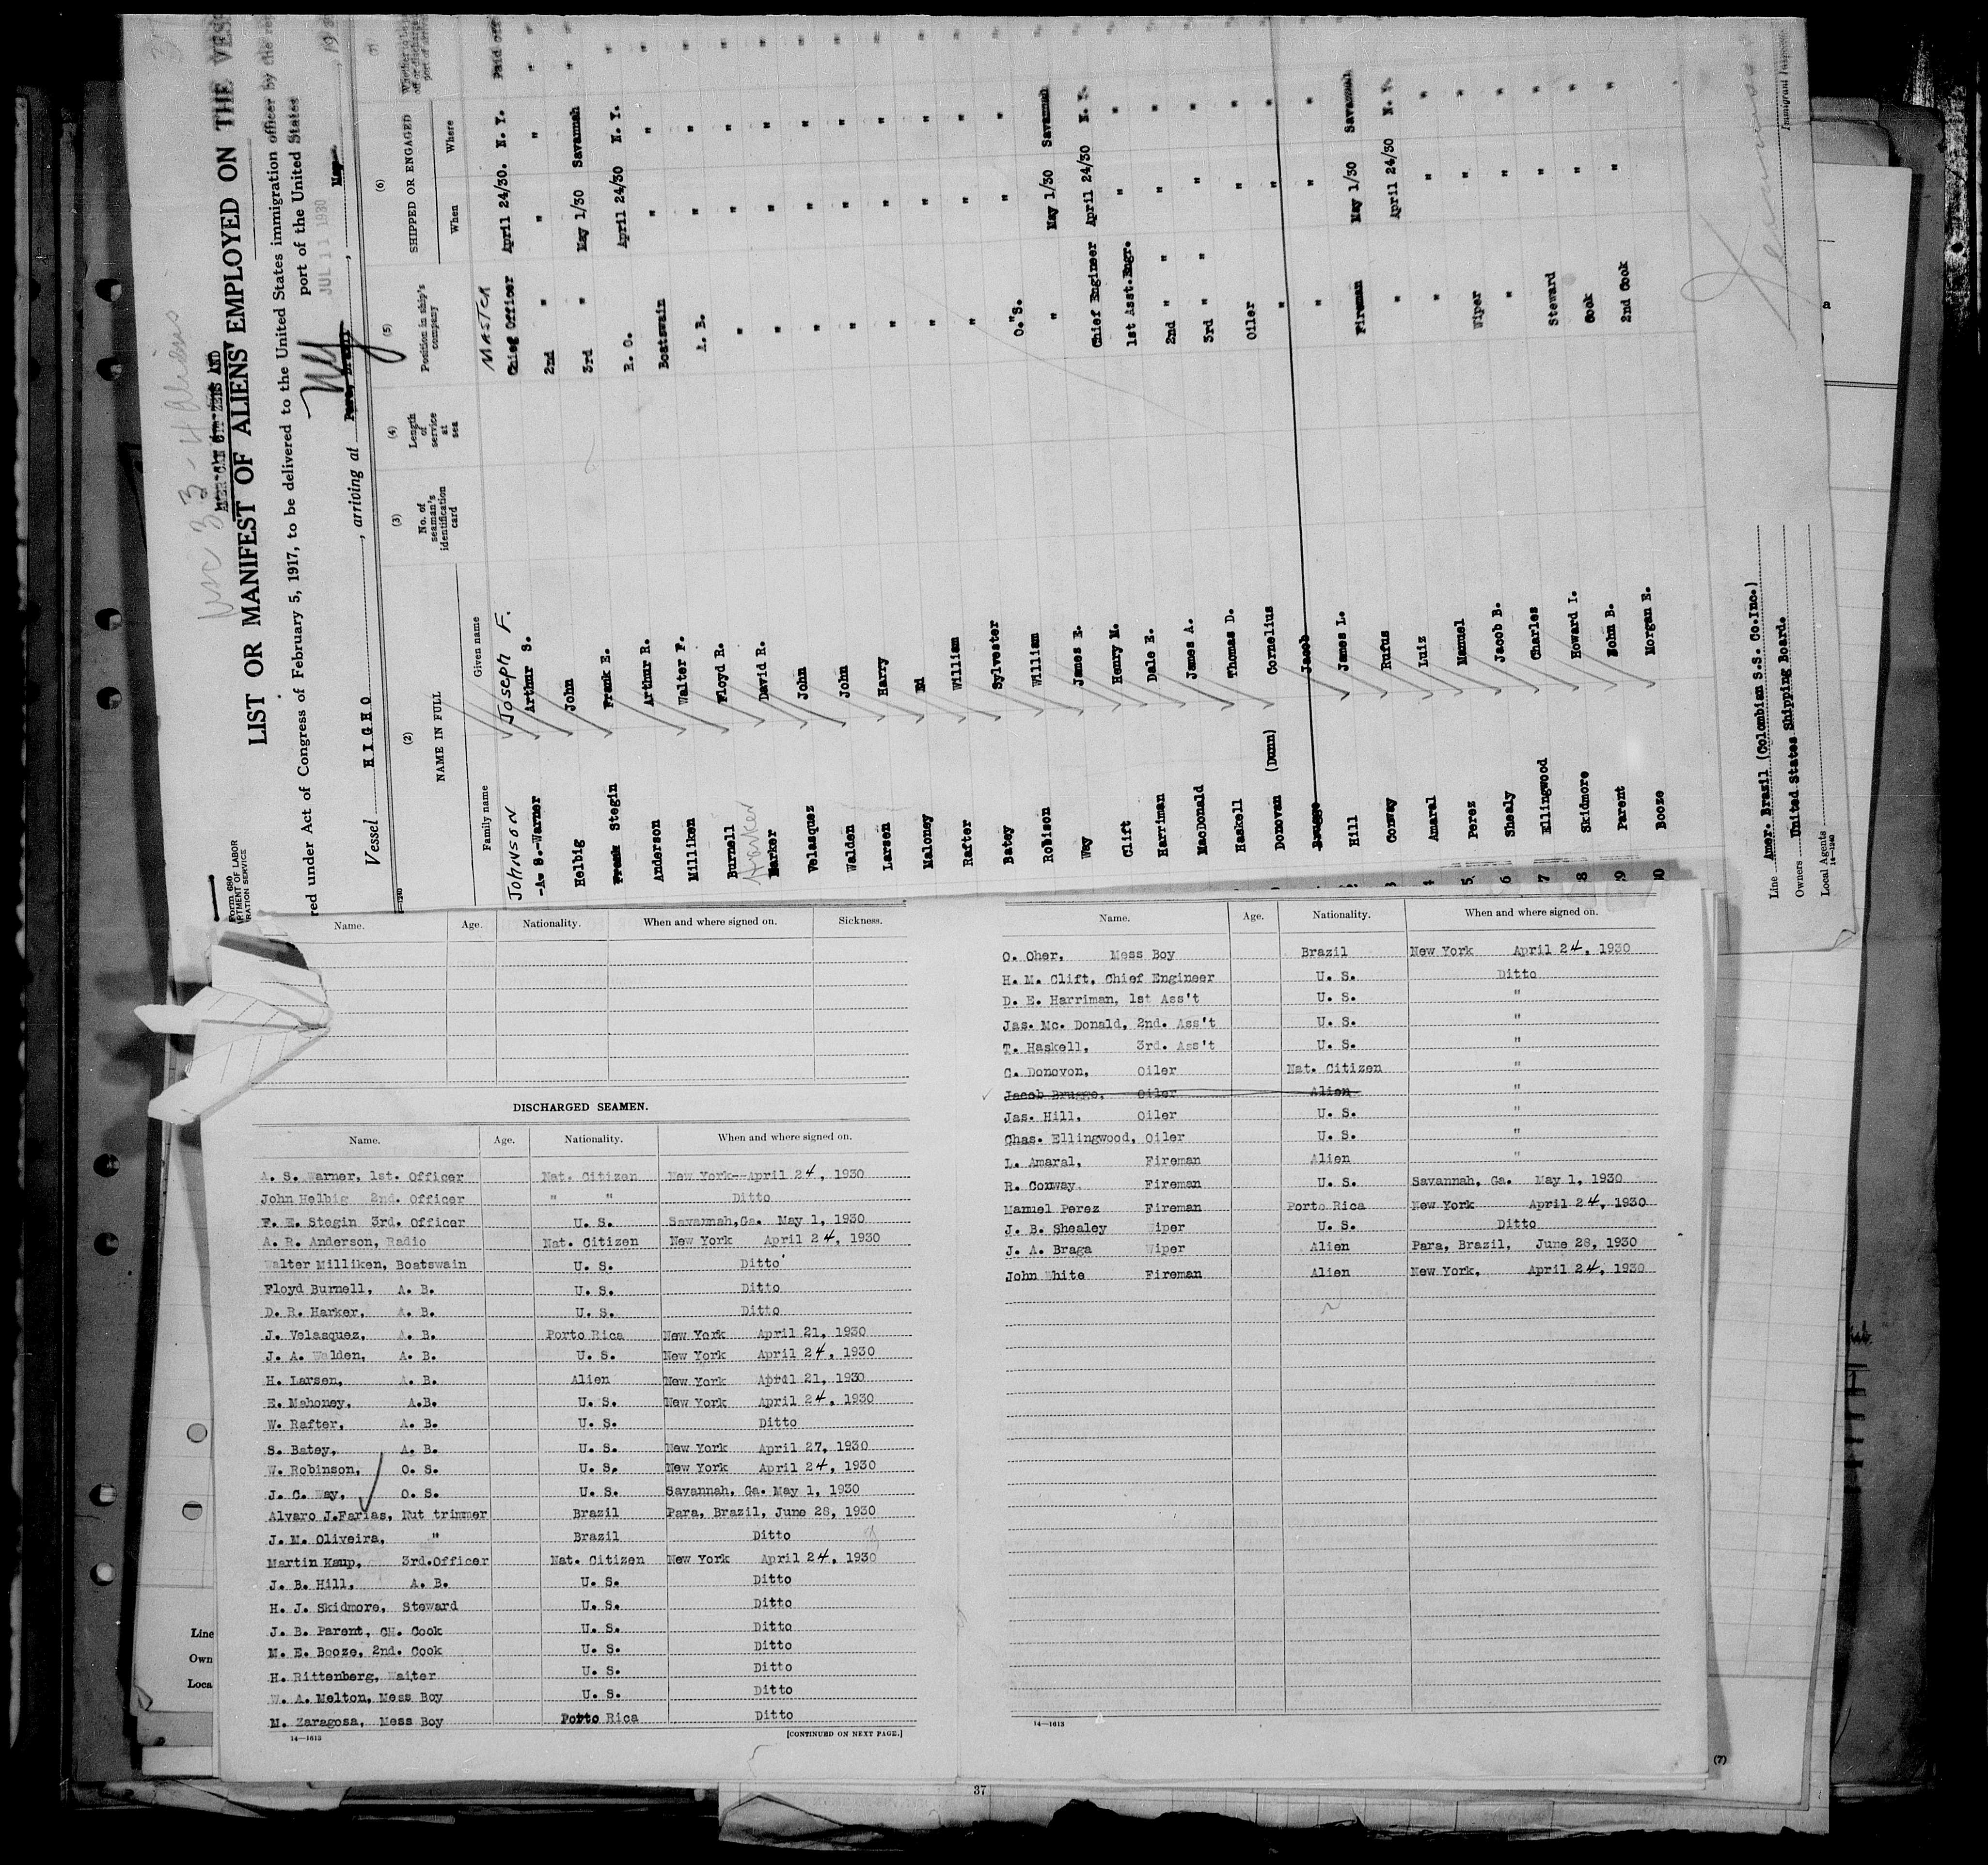 LIST OR MANIFEST OF ALIENS EMPLOYED ON THE
red under Act of Congress of February 5, 1917, to be delivered to the United States immigration officer by the
port of the United States
JUL 11 1930
Vessel H I G H O , arriving at
(2) (3) (4) (5) (6) (7)
NAME IN FULL
Family name Given name
No. of seaman's identification card
Length of service at sea
Position in ship's company
SHIPPED OR ENGAGED
When Where
JOHNSON JOSEPH F. MASTER
A. S. Warner Arthur S. Chieg Officer April 24/30. N. Y. Paid off
Helbig John 2nd " " "
Frank Stegin Frank E. 3rd " May 1/30 Savannah "
Anderson Arthur R. R. O. April 24/30 N. Y. "
Milliken Walter F. Boatswain " " "
Burnell Floyd R. A. B. " " "
Harker David R. " " " "
Velasquez John " " " "
Walden John " " " "
Larsen Harry " " " "
Maloney Ed " " " "
Rafter William " " " "
Batey Sylvester " " " "
Robison William O. S. " " "
Way James E. " May 1/30 Savannah "
Clift Henry M. Chief Engineer April 24/30 N. Y. "
Harriman Dale E. 1st Asst.Engr. " " "
MacDonald James A. 2nd " " " "
Haskell Thomas D. 3rd " " " "
Donovan (Dunn) Cornelius Oiler " " "
Brugge Jacob " " " "
Hill James L. " " " "
Conway Rufus Fireman May 1/30 Savannah "
Amaral Luiz " April 24/30 N. Y. "
Perez Manuel " " " "
Shealy Jacob B. Wiper " " "
Ellingwood Charles " " " "
Skidmore Howard I. Steward " " "
Parent John B. Cook " " "
Booze Morgan E. 2nd Cook " " "
Line Amer. Brazil (Colombian S.S. Co.Inc.)
Owners United States Shipping Board.
Local Agents
14—1240
Immigrant Inspector
Form 680
Name. Age. Nationality. When and where signed on. Sickness.
DISCHARGED SEAMEN.
Name. Age. Nationality. When and where signed on.
A. S. Warner, 1st. Officer Nat. Citizen New York--April 24, 1930
John Helbig 2nd. Officer " " Ditto
F. E. Stegin 3rd. Officer U. S. Savannah,Ga. May 1, 1930
A. R. Anderson, Radio Nat. Citizen New York April 24, 1930
Walter Milliken, Boatswain U. S. Ditto
Floyd Burnell, A. B. U. S. Ditto
D. R. Harker, A. B. U. S. Ditto
J. Velasquez, A. B. Porto Rica New York April 21, 1930
J. A. Walden, A. B. U. S. New York April 24, 1930
H. Larsen, A. B. Alien New York April 21, 1930
E. Mahoney, A.B. U. S. New York April 24, 1930
W. Rafter, A. B. U. S. Ditto
S. Batey, A. B. U. S. New York April 27, 1930
W. Robinson, O. S. U. S. New York April 24, 1930
J. C. Way, O. S. U. S. Savannah, Ga. May 1, 1930
Alvaro J.Farias, Nut trimmer Brazil Para, Brazil, June 28, 1930
J. M. Oliveira, " Brazil Ditto
Martin Kaup, 3rd.Officer Nat. Citizen New York April 24, 1930
J. B. Hill, A. B. U. S. Ditto
H. J. Skidmore, Steward U. S. Ditto
J. B. Parent, CH. Cook U. S. Ditto
M. E. Booze, 2nd. Cook U. S. Ditto
H. Rittenberg, Waiter U. S. Ditto
W. A. Melton, Mess Boy U. S. Ditto
M. Zaragosa, Mess Boy Porto Rica Ditto
14—1613 [CONTINUED ON NEXT PAGE.]
Name. Age. Nationality. When and where signed on.
O. Oher, Mess Boy Brazil New York April 24, 1930
H. M. Clift, Chief Engineer U. S. Ditto
D. E. Harriman, 1st Ass't U. S. "
Jas. Mc. Donald, 2nd. Ass't U. S. "
T. Haskell, 3rd. Ass't U. S. "
C. Donovon, Oiler Nat. Citizen "
Jacob Brugge, Oiler Alien "
Jas. Hill, Oiler U. S. "
Chas. Ellingwood, Oiler U. S. "
L. Amaral, Fireman Alien "
R. Conway Fireman U. S. Savannah, Ga. May 1, 1930
Manuel Perez Fireman Porto Rica New York April 24, 1930
J. B. Shealey Wiper U. S. Ditto
J. A. Braga Wiper Alien Para, Brazil, June 28, 1930
John White Fireman Alien New York, April 24, 1930
14—1613
(7)
Line
Own
Loca
37